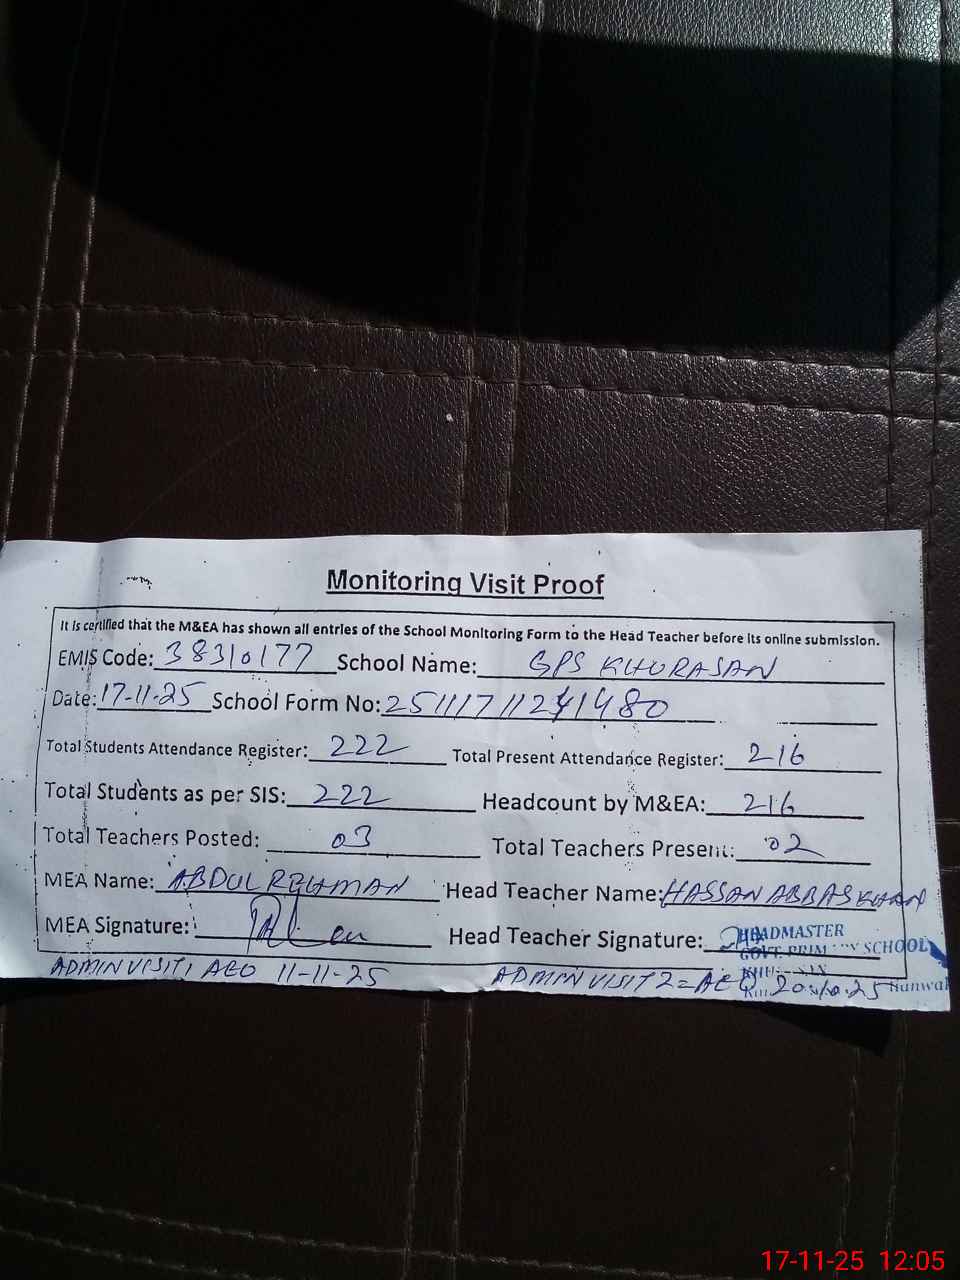 Monitoring Visit Proof
It is certified that the M&EA has shown all entries of the School Monitoring Form to the Head Teacher before its online submission.
EMIS Code: 38310177 School Name: GPS KHORASAN
Date: 17-11-25 School Form No: 25111711241480
Total Students Attendance Register: 222 Total Present Attendance Register: 216
Total Students as per SIS: 222 Headcount by M&EA: 216
Total Teachers Posted: 03 Total Teachers Present: 02
MEA Name: ABDUL REHMAN Head Teacher Name: HASSAN ABBAS KHAN
MEA Signature: Head Teacher Signature:
HEADMASTER
GOVT. PRIMARY SCHOOL
ADMIN VISIT 1 AEO 11-11-25 ADMIN VISIT 2 = AEO 20.10.25
17-11-25 12:05